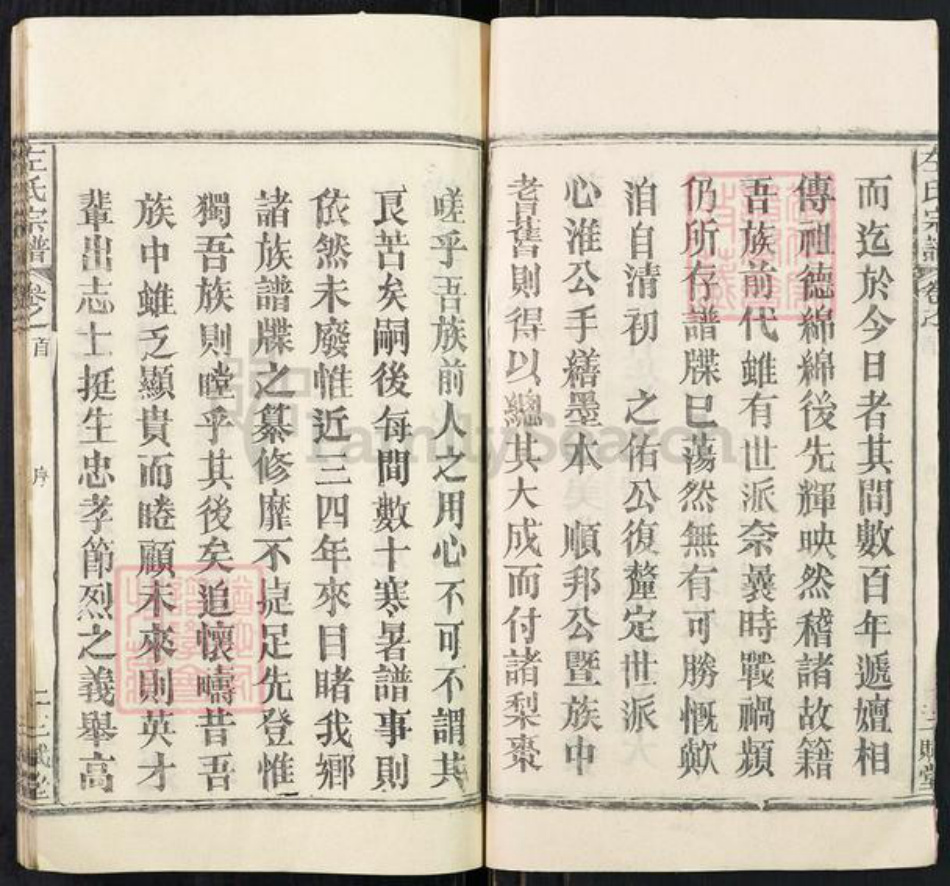 而迄於今日者其間數百年遞嬗相
傳祖德綿綿後先輝映然稽諸故籍
吾族前代雖有世派奈曩時戰禍頻
仍所存譜牒已蕩然無有可勝慨歟
洎自清初 之佑公復釐定世派
心淮公手繕墨本 順邦公暨族中
耆舊則得以總其大成而付諸梨棗
嗟乎吾族前人之用心不可不謂其
艮苦矣嗣後每間數十寒暑譜事則
依然未廢惟近三四年來目睹我鄉
諸族譜牒之纂修靡不疌足先登惟
獨吾族則瞠乎其後矣追懷疇昔吾
族中雖乏顯貴而睠顧未來則英才
輩出志士挺生忠孝節烈之義舉高
左氏宗譜 卷之首 序
FamilySearch